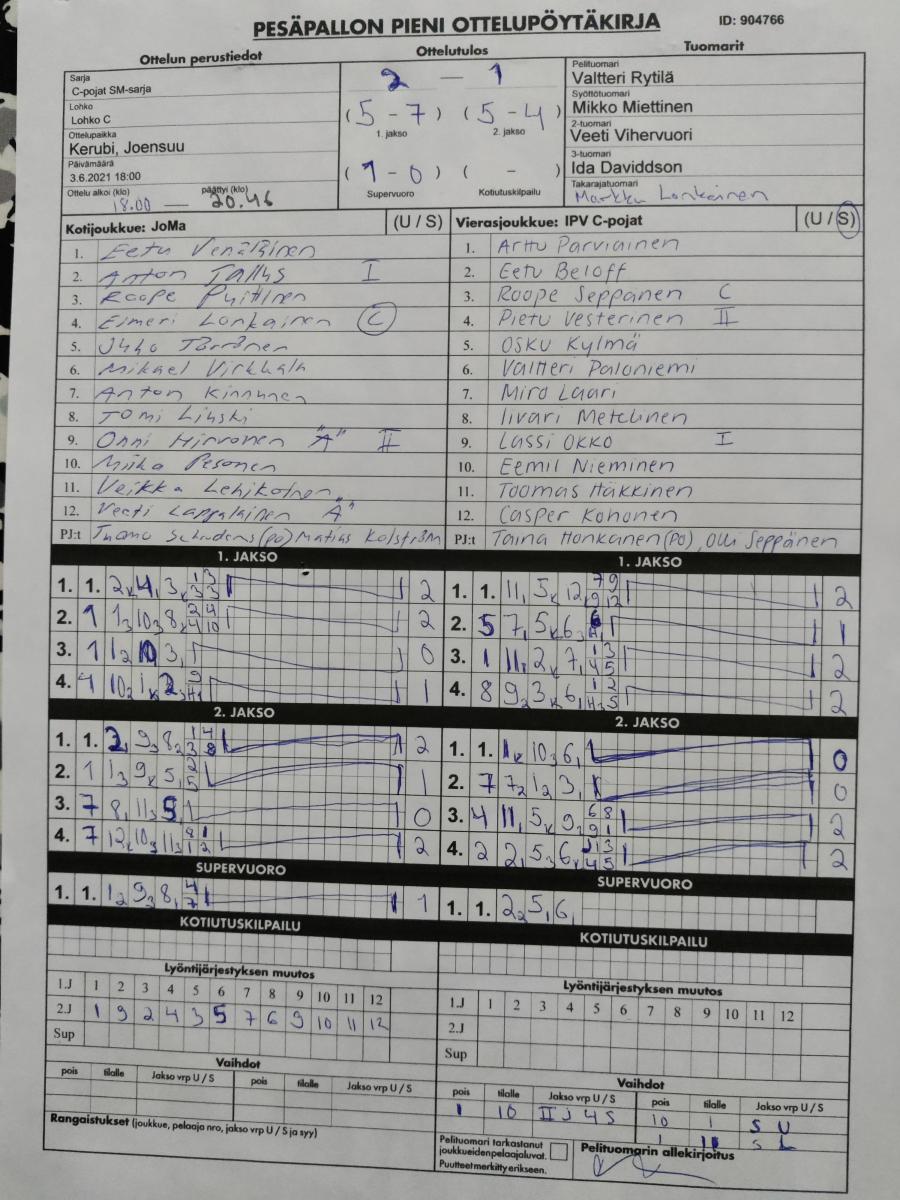 PESÄPALLON PIENI OTTELUPÖYTÄKIRJA
ID: 904766
Ottelun perustiedot
Ottelutulos
Tuomarit
Sarja
C-pojat SM-sarja
Lohko
Lohko C
Ottelupaikka
Kerubi, Joensuu
Päivämäärä
3.6.2021 18:00
Ottelu alkoi (klo) päättyi (klo)
18.00 — 20.46
2 — 1
(5 - 7) (5 - 4)
1. jakso 2. jakso
(1 - 0) ( - )
Supervuoro Kotiutuskilpailu
Pelituomari
Valtteri Rytilä
Syöttötuomari
Mikko Miettinen
2-tuomari
Veeti Vihervuori
3-tuomari
Ida Daviddson
Takarajatuomari
Markku Lonkainen
Kotijoukkue: JoMa (U / S)
1. Eetu Venäläinen
2. Anton Tallus I
3. Roope Puittinen
4. Elmeri Lonkainen C
5. Juho Törrönen
6. Mikael Virkkala
7. Anton Kinnunen
8. Tomi Linski
9. Onni Hirvonen "A" II
10. Miika Pesonen
11. Veikka Lehikoinen
12. Veeti Lappalainen "A"
PJ:t Tuomo (PO) Matias Kolström
Vierasjoukkue: IPV C-pojat (U / S)
1. Arttu Parviainen
2. Eetu Beloff
3. Roope Seppänen C
4. Pietu Vesterinen II
5. Osku Kylmä
6. Valtteri Paloniemi
7. Miro Laari
8. Iivari Metelinen
9. Lassi Okko I
10. Eemil Nieminen
11. Toomas Häkkinen
12. Casper Kohonen
PJ:t Taina Honkanen (PO), Olli Seppänen
1. JAKSO
1. 1. 2 4, 3 2
2. 1 1 10 8 2
3. 1 1 2 10 3, 0
4. 4 10 1 2 1
2. JAKSO
1. 1. 2, 9 8 2
2. 1 1 9 5 1
3. 7 8, 11 5, 0
4. 7 12 10 11 2
SUPERVUORO
1. 1. 1 9 8, 1
KOTIUTUSKILPAILU
1. JAKSO
1. 1. 11, 5 12 2
2. 5 7, 5 6 1
3. 1 11, 2 7, 2
4. 8 9 3 6, 2
2. JAKSO
1. 1. 1 10 6, 0
2. 7 7 1 3, 0
3. 4 11, 5 9 2
4. 2 2, 5 6 2
SUPERVUORO
1. 1. 2 5, 6,
KOTIUTUSKILPAILU
Lyöntijärjestyksen muutos
1.J 1 2 3 4 5 6 7 8 9 10 11 12
2.J 1 9 2 4 3 5 7 6 9 10 11 12
Sup
Vaihdot
pois tilalle Jakso vrp U / S pois tilalle Jakso vrp U / S
Rangaistukset (joukkue, pelaaja nro, jakso vrp U / S ja syy)
Lyöntijärjestyksen muutos
1.J 1 2 3 4 5 6 7 8 9 10 11 12
2.J
Sup
Vaihdot
pois tilalle Jakso vrp U / S pois tilalle Jakso vrp U / S
1 10 II J 4 S 10 1 S U
Pelituomari tarkastanut
joukkueiden pelaajaluvat.
Puutteet merkitty erikseen.
Pelituomarin allekirjoitus